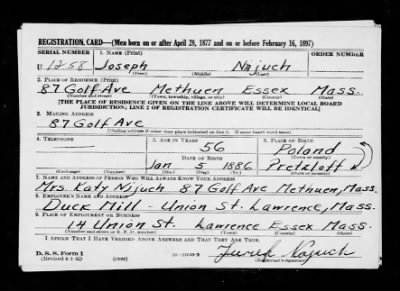 REGISTRATION CARD—(Men born on or after April 28, 1877 and on or before February 16, 1897)
SERIAL NUMBER 1. NAME (Print) ORDER NUMBER
U 1258 Joseph Najuch
(First) (Middle) (Last)
2. PLACE OF RESIDENCE (Print)
87 Golf Ave Methuen Essex Mass.
(Number and street) (Town, township, village, or city) (County) (State)
[THE PLACE OF RESIDENCE GIVEN ON THE LINE ABOVE WILL DETERMINE LOCAL BOARD
JURISDICTION; LINE 2 OF REGISTRATION CERTIFICATE WILL BE IDENTICAL]
3. MAILING ADDRESS
87 Golf Ave
[Mailing address if other than place indicated on line 2. If same insert word same]
4. TELEPHONE 5. AGE IN YEARS 6. PLACE OF BIRTH
56 Poland
DATE OF BIRTH (Town or county)
Jan 5 1886
(Exchange) (Number) (Mo.) (Day) (Yr.) (State or country)
7. NAME AND ADDRESS OF PERSON WHO WILL ALWAYS KNOW YOUR ADDRESS
Mrs. Katy Nijuch 87 Golf Ave Methuen, Mass.
8. EMPLOYER'S NAME AND ADDRESS
Duck Mill - Union St. Lawrence, Mass.
9. PLACE OF EMPLOYMENT OR BUSINESS
14 Union St. Lawrence Essex Mass.
(Number and street or R. F. D. number) (Town) (County) (State)
I AFFIRM THAT I HAVE VERIFIED ABOVE ANSWERS AND THAT THEY ARE TRUE.
D. S. S. Form 1
(Revised 4-1-42) (over) Najuch
(Registrant's signature)